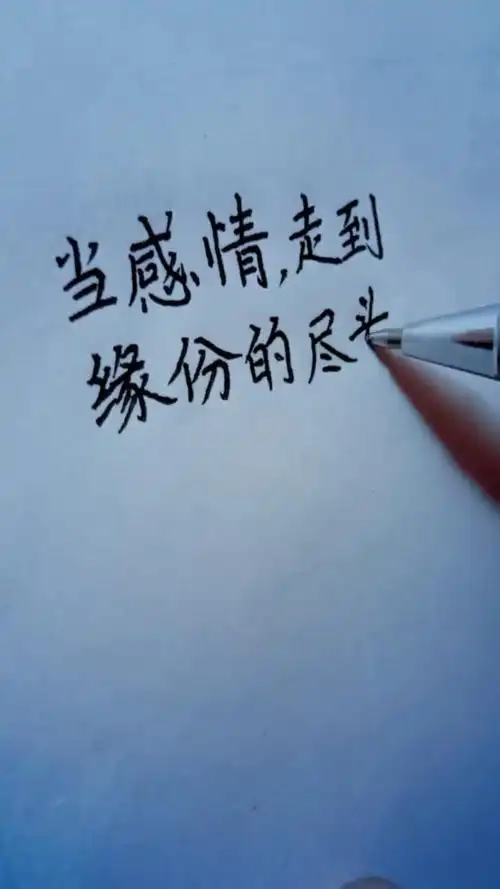 当感情,走到
缘份的尽头